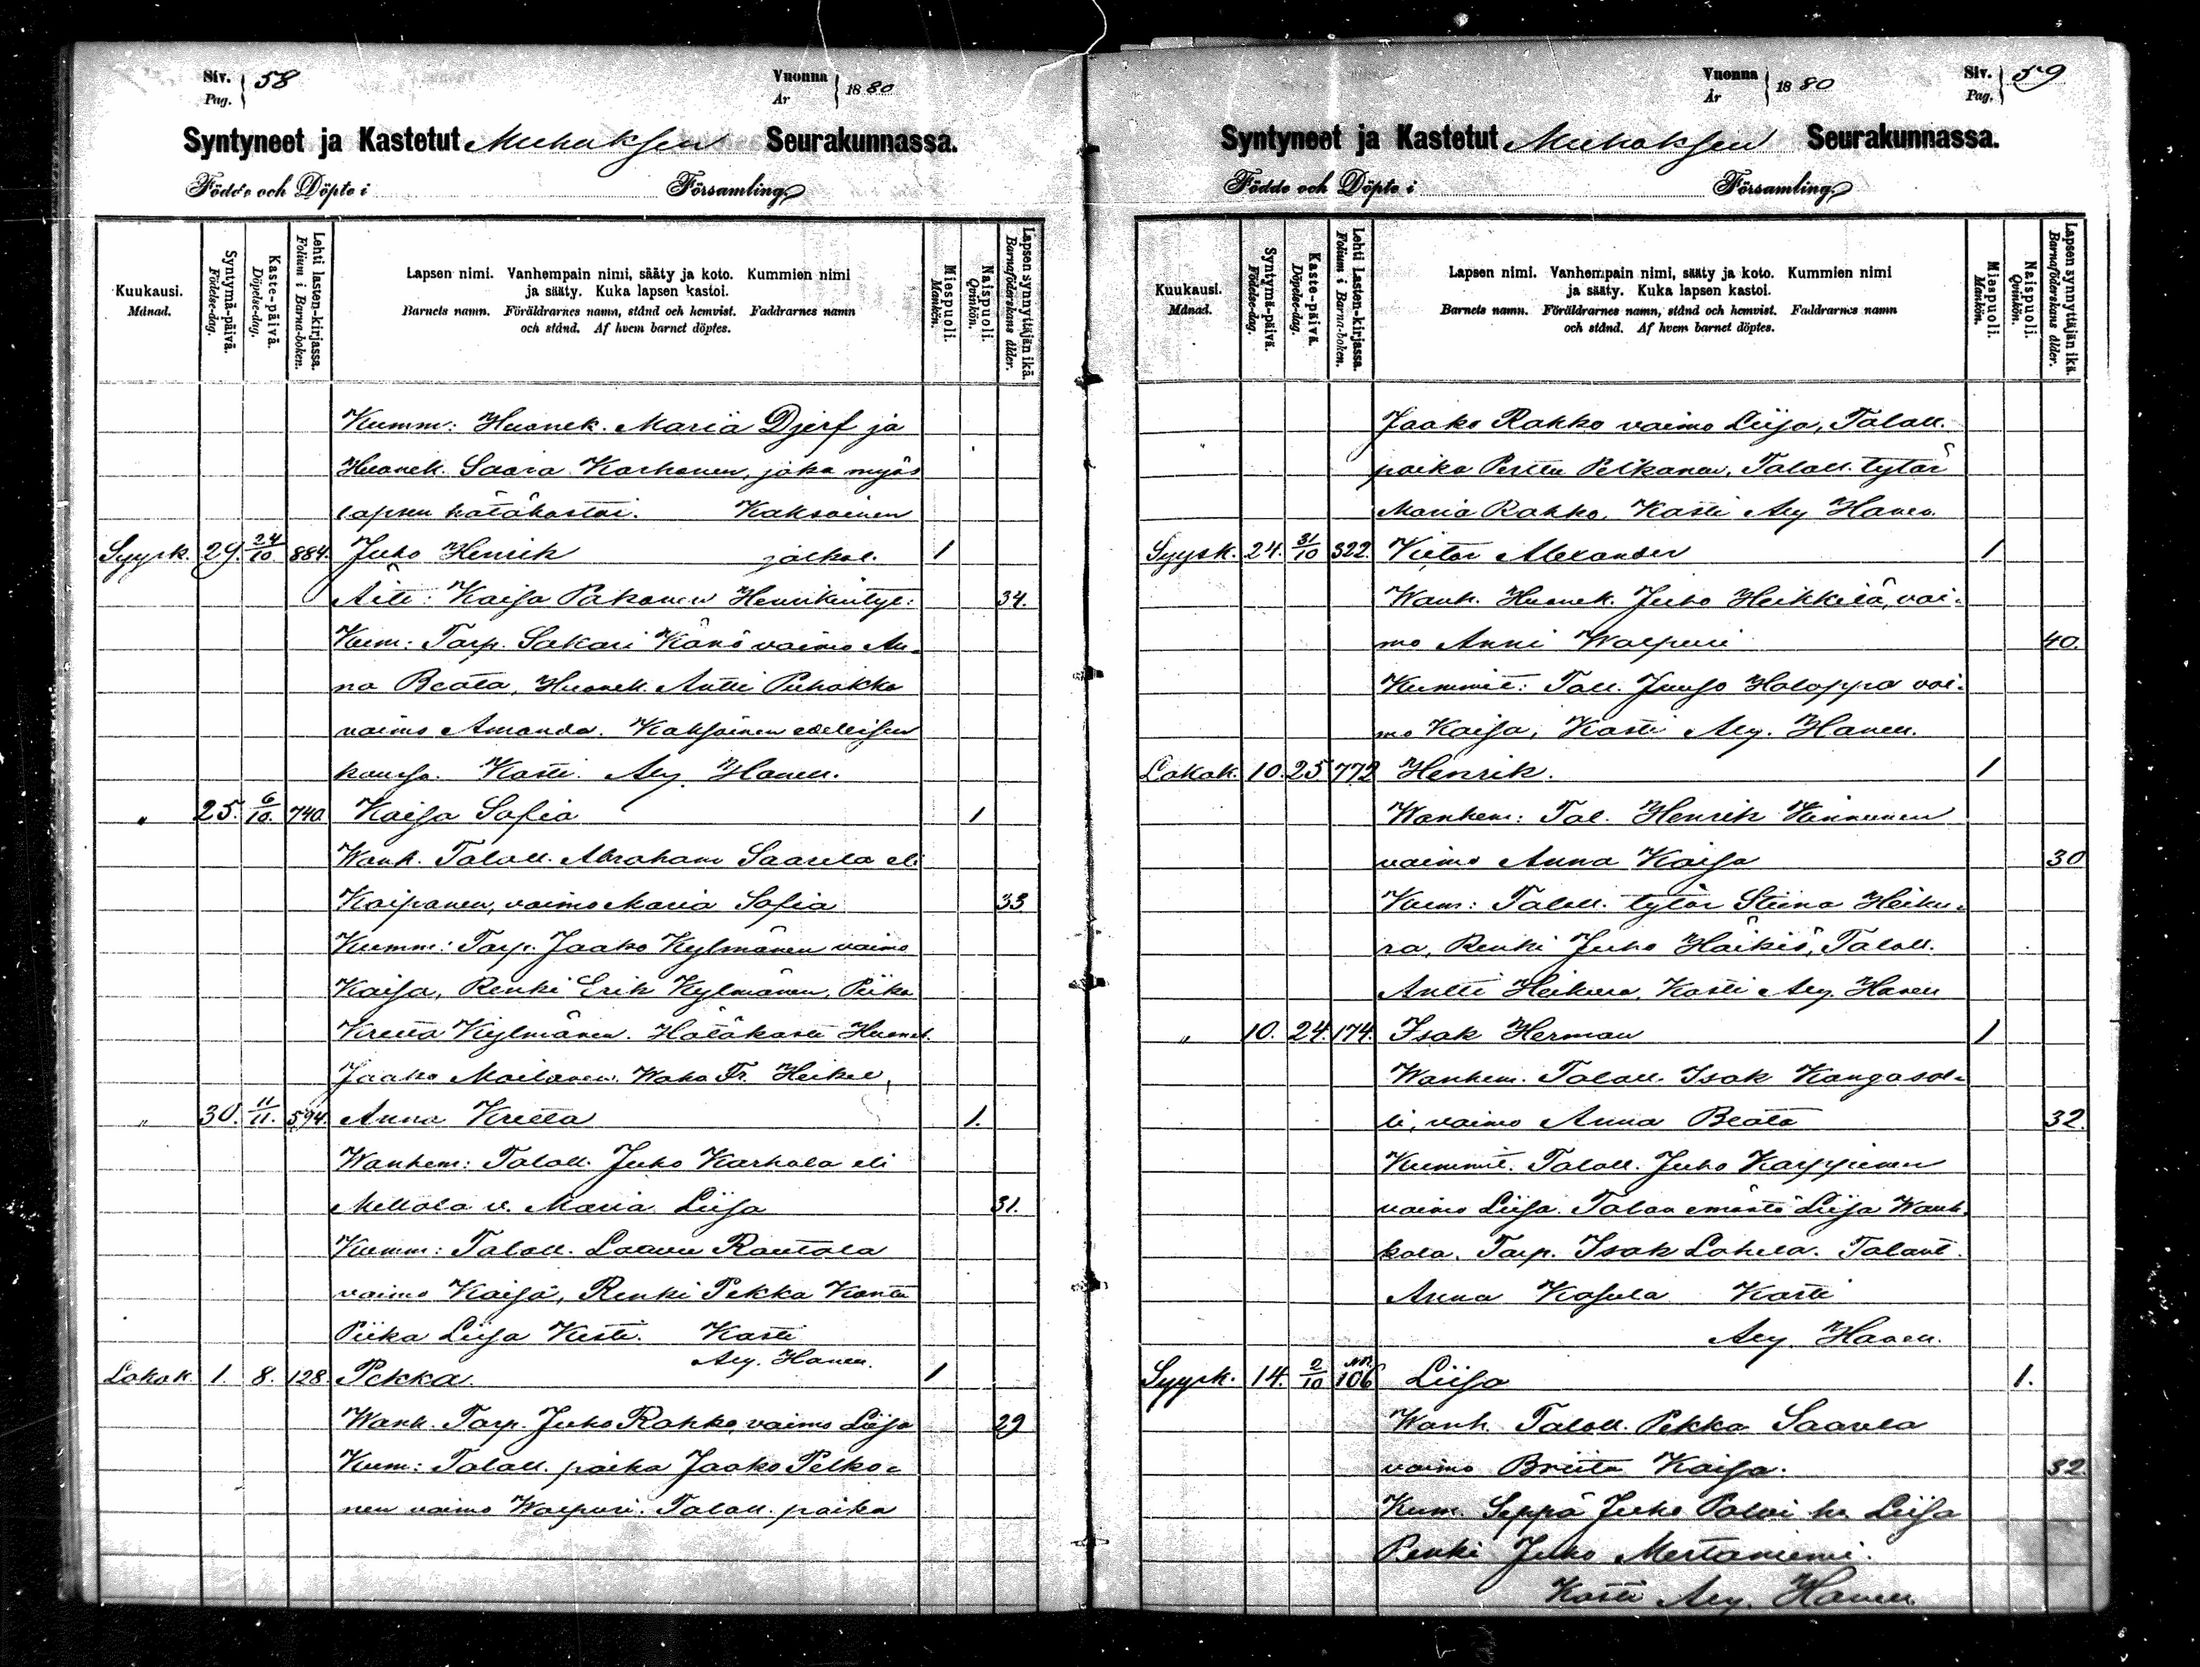 Siv. Pag. 58 Vuonna År 1880
Syntyneet ja Kastetut Muhoksen Seurakunnassa.
Födde och Döpte i Församling
Kuukausi. Månad.
Syntymä-päivä. Födelse-dag.
Kaste-päivä. Döpelse-dag.
Lehti lasten-kirjassa. Folium i Barna-boken.
Lapsen nimi. Vanhempain nimi, sääty ja koto. Kummien nimi
ja sääty. Kuka lapsen kastoi.
Barnets namn. Föräldrarnes namn, stånd och hemvist. Faddrarnes namn
och stånd. Af hvem barnet döptes.
Miespuoli. Mankön.
Naispuoli. Qvinkön.
Lapsen synnyttäjän ikä. Barnaföderskans ålder.
Kumm: Huonek. Maria Djerf ja
Huonek. Saara Karhonen, joka myös
lapsen hätäkastoi. Kaksoinen
Syysk. 29. 24/10. 884. Juho Henrik jälkol. 1
Äiti: Kaisa Pakanen Henrikintyt: 34.
Kum: Torp. Sakari Känö vaimo An-
na Beata, Huonek. Antti Puhakka
vaimo Amanda. Kaksoinen edellisen
kanssa. Kasti. Aly Haven.
" 25. 6/10. 740. Kaisa Sofia 1
Wanh. Taloll. Abraham Saarela eli
Kaipanen, vaimo Maria Sofia 33
Kumm: Torp. Jaako Kylmänen vaimo
Kaisa, Renki Erik Kylmänen, Piika
Kreeta Kylmänen. Hätäkasti Huonek.
Jaako Moilanen. Waka Fr. Heikel,
" 30. 11/11. 594. Anna Kreeta 1.
Wanhem: Taloll. Juho Karhola eli
Mellola v. Maria Liisa 31.
Kumm: Taloll. Laauu Rautola
vaimo Kaisa, Renki Pekka Kontu
Piika Liisa Kesti. Kasti
Aly. Haven.
Lokak. 1. 8. 128. Pekka. 1
Wanh. Torp. Juho Rahko, vaimo Liisa 29
Kum: Taloll. poika Jaako Pelko-
nen vaimo Walpuri. Taloll. poika
Siv. Pag. 59 Vuonna År 1880
Syntyneet ja Kastetut Muhoksen Seurakunnassa.
Födde och Döpte i Församling
Kuukausi. Månad.
Syntymä-päivä. Födelse-dag.
Kaste-päivä. Döpelse-dag.
Lehti Lasten-kirjassa. Folium i Barna-boken.
Lapsen nimi. Vanhempain nimi, sääty ja koto. Kummien nimi
ja sääty. Kuka lapsen kastoi.
Barnets namn. Föräldrarnes namn, stånd och hemvist. Faddrarnes namn
och stånd. Af hvem barnet döptes.
Miespuoli. Mankön.
Naispuoli. Qvinkön.
Lapsen synnyttäjän ikä. Barnaföderskans ålder.
Jaako Rahko vaimo Liisa, Taloll.
poika Perttu Pelkonen, Taloll. tytär
Maria Rahko. Kasti Aly Haven
Syysk. 24. 31/10 322. Victor Alexander 1
Wanh. Huonek. Juho Heikkilä, vai-
mo Anni Walpuri 40.
Kummit: Tall. Juuso Holappa vai-
mo Kaisa, Kasti Aly. Haven.
Lokak. 10. 25 772 Henrik. 1
Wanhem: Tal. Henrik Hinnunen
vaimo Anna Kaisa 30
Kum: Taloll. tytär Stiina Heiku-
ra, Renki Juho Häikiö, Taloll.
Antti Heikura, Kasti Aly. Haven
" 10. 24. 174. Isak Herman 1
Wanhem. Taloll. Isak Kangasol-
li, vaimo Anna Beata 32.
Kummit. Taloll. Juho Karppinen
vaimo Liisa. Talon emäntä Liisa Wanh-
kala. Torp. Isak Lohela. Talont.
Anna Kosula Kasti
Aly. Haven.
Syysk. 14. 2/10 106 Liisa 1.
Wanh. Taloll. Pekka Saarela
vaimo Briita Kaisa. 32.
Kum. Seppä Juho Palvi hu Liisa
Renki Juho Mertaniemi.
Kasti Aly. Haven.